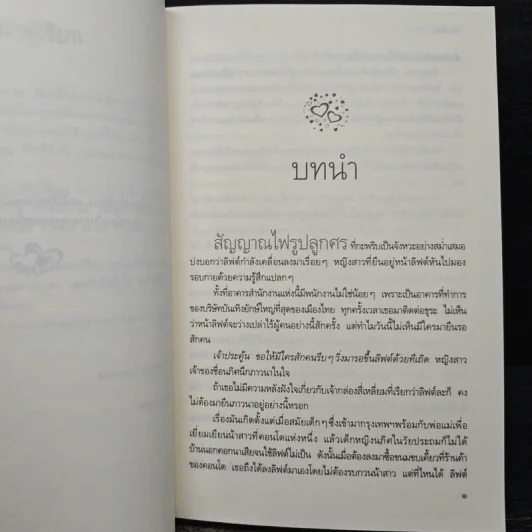 บทนำ
สัญญาณไฟรูปลูกศร ที่กะพริบเป็นจังหวะอย่างสม่ำเสมอ
บ่งบอกว่าลิฟต์กำลังเคลื่อนลงมาเรื่อยๆ หญิงสาวที่ยืนอยู่หน้าลิฟต์หันไปมอง
รอบกายด้วยความรู้สึกแปลกๆ
ทั้งที่อาคารสำนักงานแห่งนี้มีพนักงานไม่ใช่น้อยๆ เพราะเป็นอาคารที่ทำการ
ของบริษัทบันเทิงยักษ์ใหญ่ที่สุดของเมืองไทย ทุกครั้งเวลาเธอมาติดต่อธุระ ไม่เห็น
ว่าหน้าลิฟต์จะว่างเปล่าไร้ผู้คนอย่างนี้สักครั้ง แต่ทำไมวันนี้ไม่เห็นมีใครมายืนรอ
สักคน
เจ้าประคู้น ขอให้มีใครสักคนรีบๆ วิ่งมารอขึ้นลิฟต์ด้วยทีเถิด หญิงสาว
เจ้าของชื่อนภีตนึกภาวนาในใจ
ถ้าเธอไม่มีความหลังฝังใจเกี่ยวกับเจ้ากล่องสี่เหลี่ยมที่เรียกว่าลิฟต์ละก็ คง
ไม่ต้องมายืนภาวนาอยู่อย่างนี้หรอก
เรื่องมันเกิดตั้งแต่เมื่อสมัยเด็กๆ ซึ่งเข้ามากรุงเทพฯ พร้อมกับพ่อแม่เพื่อ
เยี่ยมเยียนน้าสาวที่คอนโดแห่งหนึ่ง แล้วเด็กหญิงนภีตในวัยประถมก็ไม่ได้
บ้านนอกคอกนาเสียจนใช้ลิฟต์ไม่เป็น ดังนั้นเมื่อต้องลงมาซื้อขนมขบเคี้ยวที่ร้านค้า
ของคอนโด เธอถึงได้ลงลิฟต์มาเองโดยไม่ต้องรบกวนน้าสาว แต่ที่ไหนได้ ลิฟต์